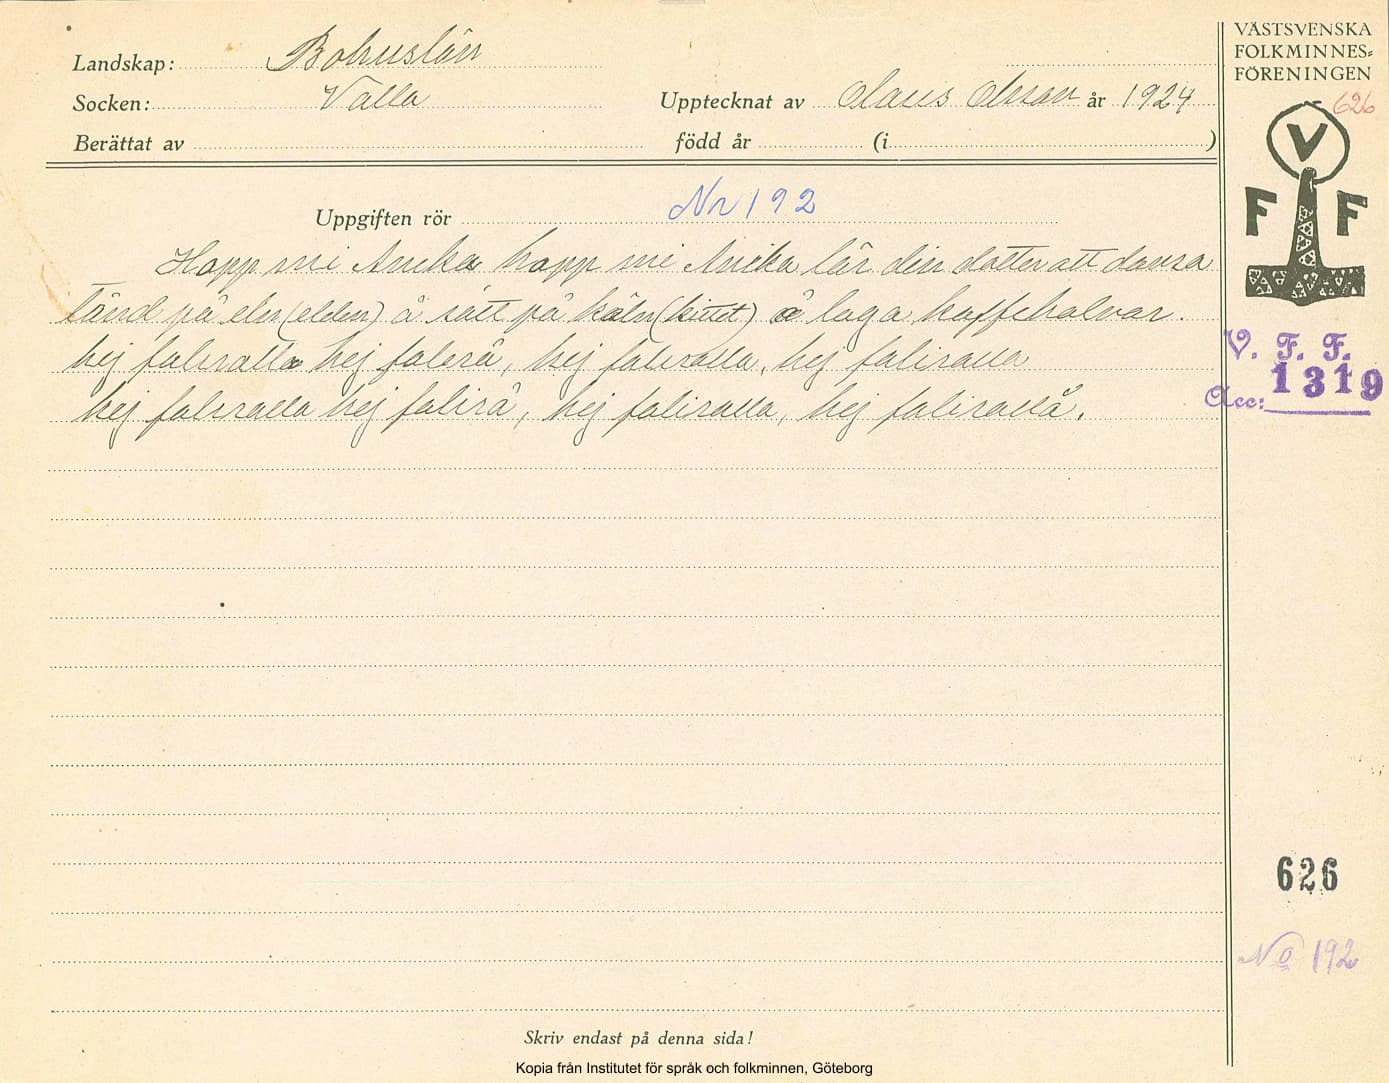 Landskap: Bohuslän
Socken: Valla
Upptecknat av Olaus Olsson år 1924
Berättat av
född år (i )
VÄSTSVENSKA
FOLKMINNES=
FÖRENINGEN
626
V
F F
Uppgiften rör Nr 192
Hopp mi Anika hopp mi Anika lär din dotter att dansa
tänd på eln (elden) å sätt på käln (kittel) å laga kaffehalvar.
hej faliralla hej falirå, hej faliralla, hej faliralla
hej faliralla hej falirå, hej faliralla, hej falirallå.
V. F. F.
Acc: 1319
626
No 192
Skriv endast på denna sida!
Kopia från Institutet för språk och folkminnen, Göteborg